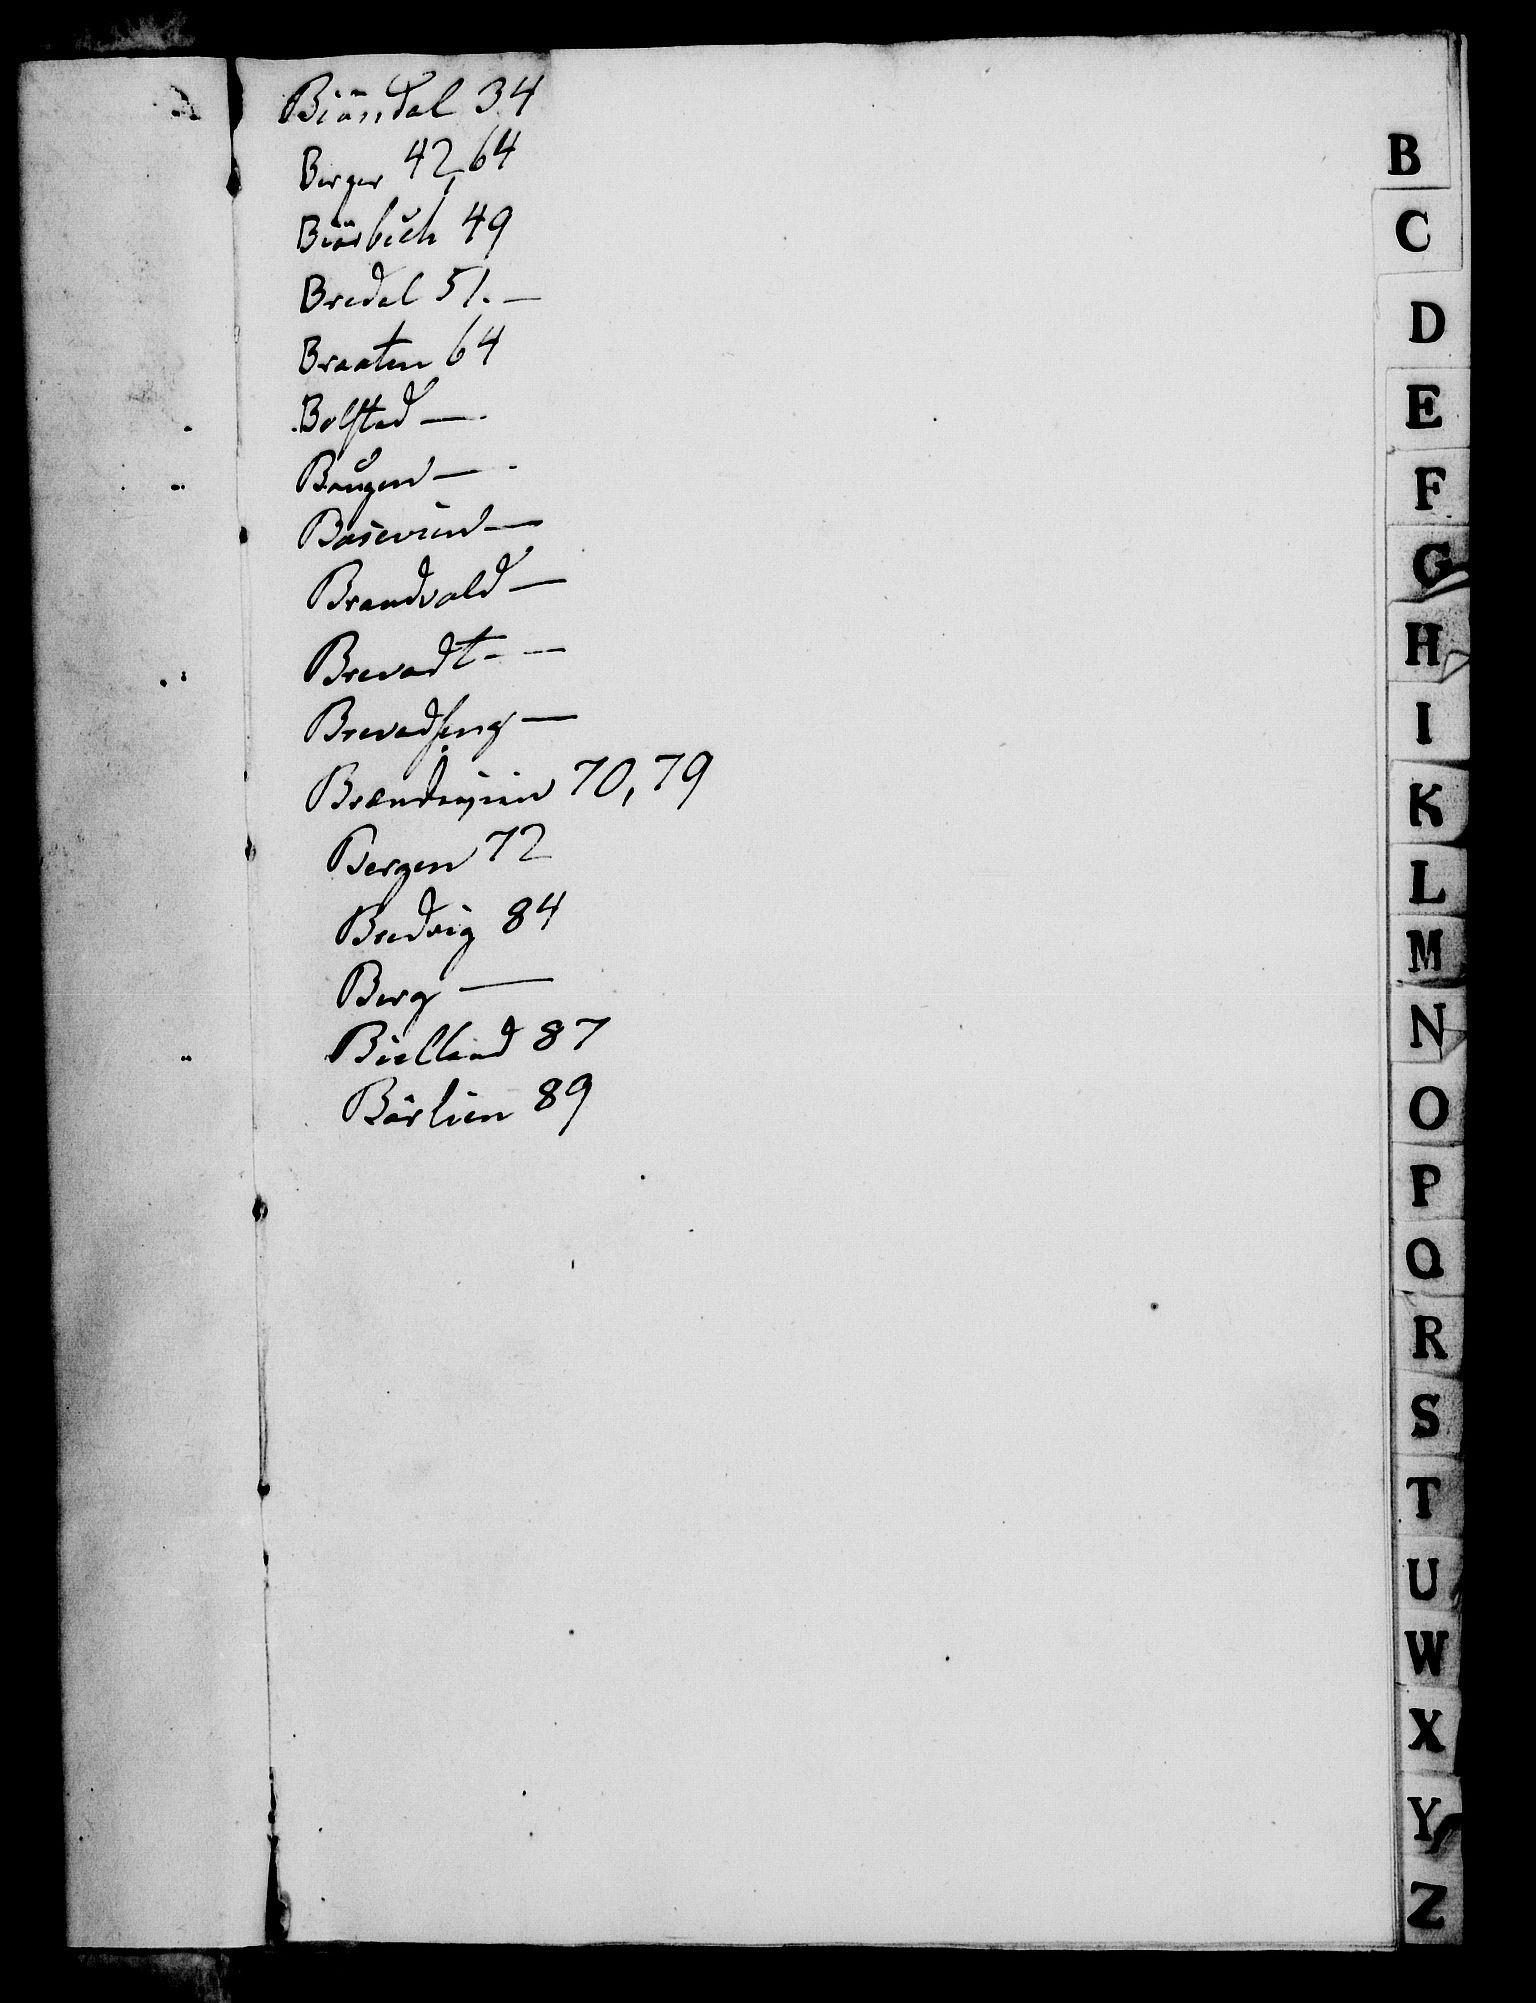 Biöndal 34
Berger 42,64
Biörbech 49
Bredal 51. —
Braaten 64
Bolstad — .
Baugen — .
Brandvold —
Brevadt - —
Brevadseng —
70, 79
Bergen 72
Bredvig 84
Berg —
Bielland 87
Börlien 89
B
C
D
E
F
G
H
I
K
L
M
N
O
P
Q
R
S
T
U
W
X
Y
Z